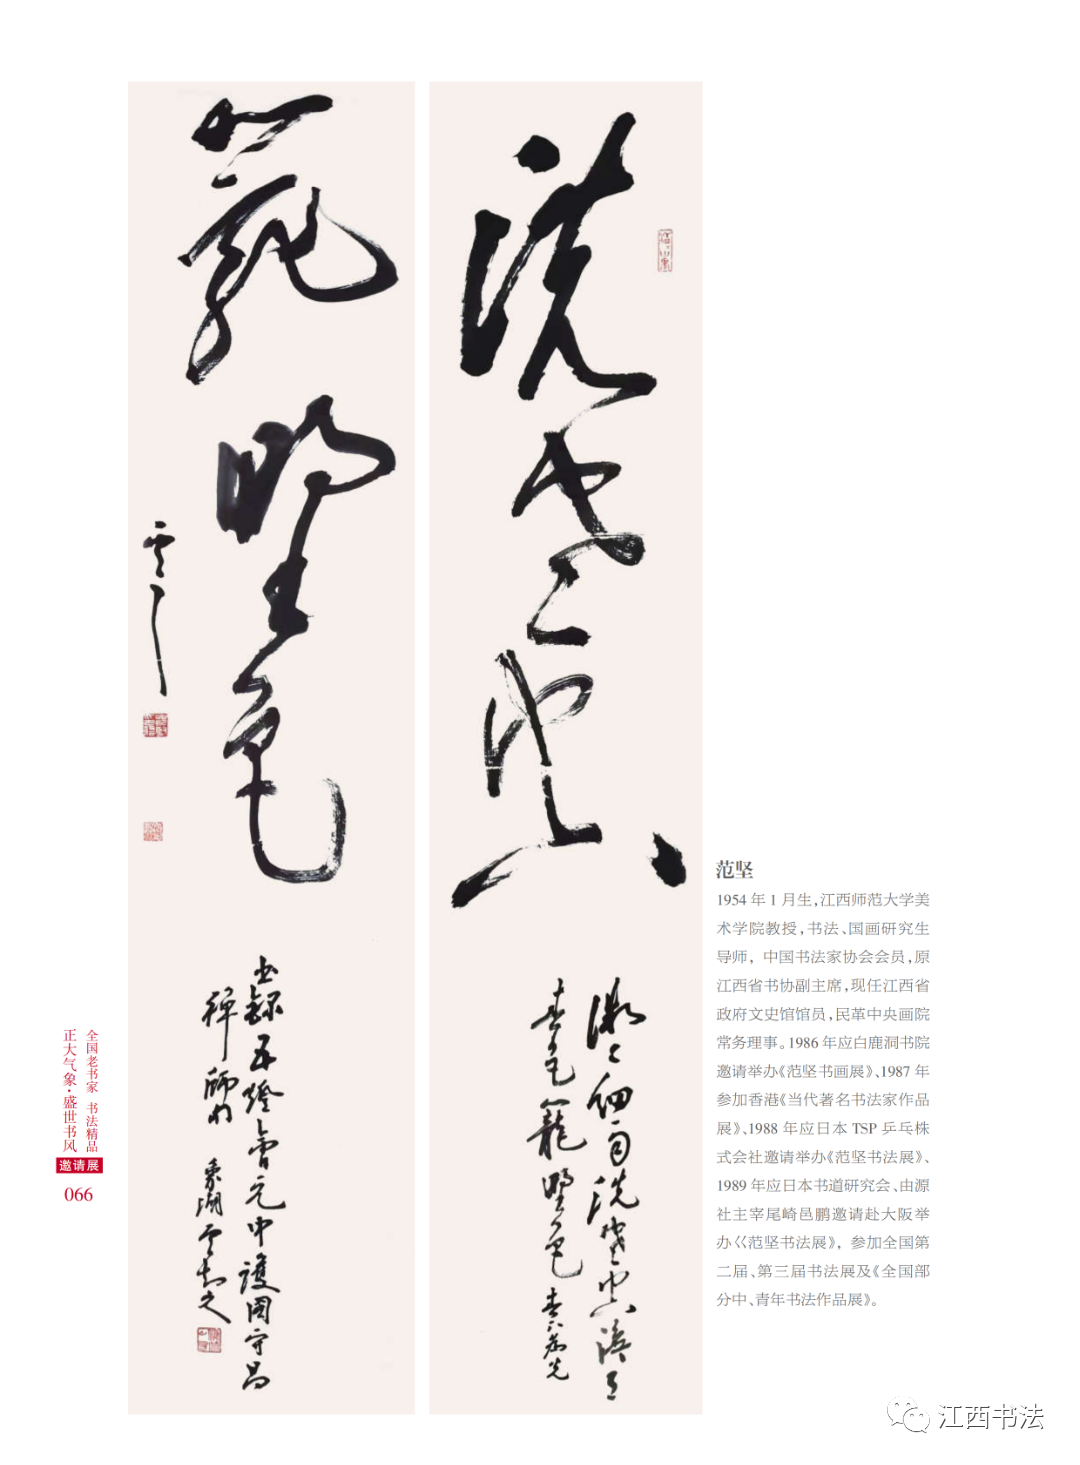 洗楚空
籠野色
细雨洗楚空
春色籠野色
錄五燈會元中護國守昌
禪師
范坚
1954 年 1 月生，江西师范大学美
术学院教授，书法、国画研究生
导师，中国书法家协会会员，原
江西省书协副主席，现任江西省
政府文史馆馆员，民革中央画院
常务理事。1986 年应白鹿洞书院
邀请举办《范坚书画展》、1987 年
参加香港《当代著名书法家作品
展》、1988 年应日本 TSP 乒乓株
式会社邀请举办《范坚书法展》、
1989 年应日本书道研究会、由源
社主宰尾崎邑鹏邀请赴大阪举
办《《范坚书法展》，参加全国第
二届、第三届书法展及《全国部
分中、青年书法作品展》。
全国老书家 书法精品
正大气象·盛世书风
邀请展
066
江西书法